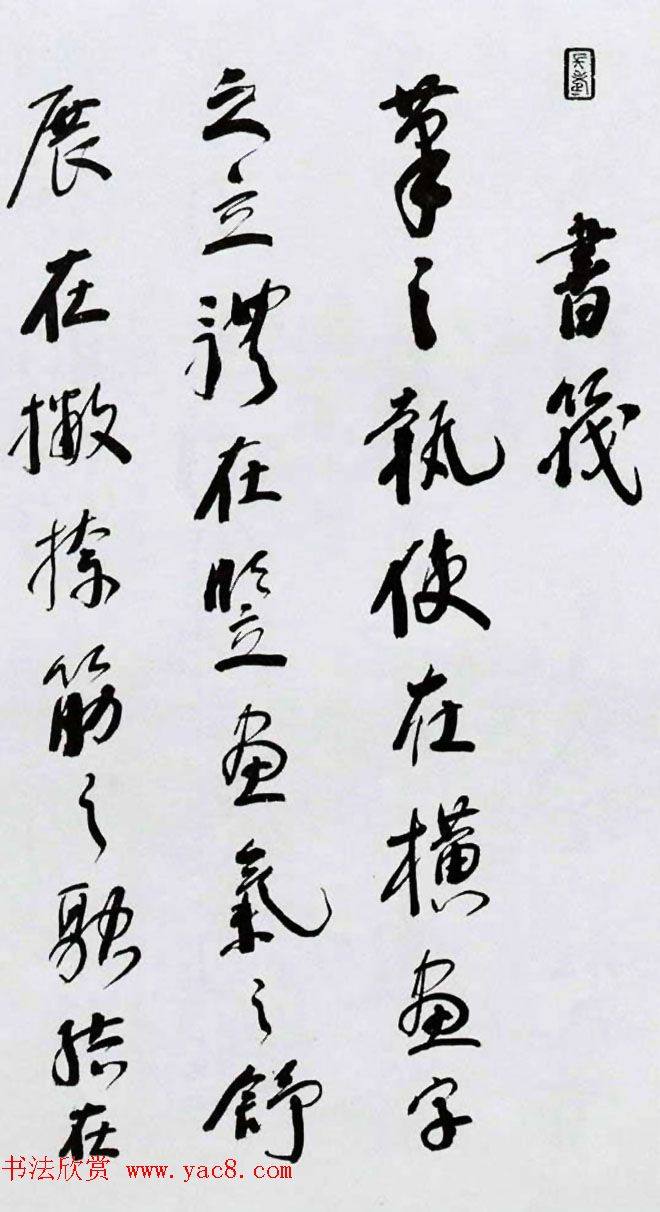 書筏
筆之執使在橫畫字
之立體在竪畫氣之舒
展在撇捺筋之融結在
书法欣赏 www.yac8.com